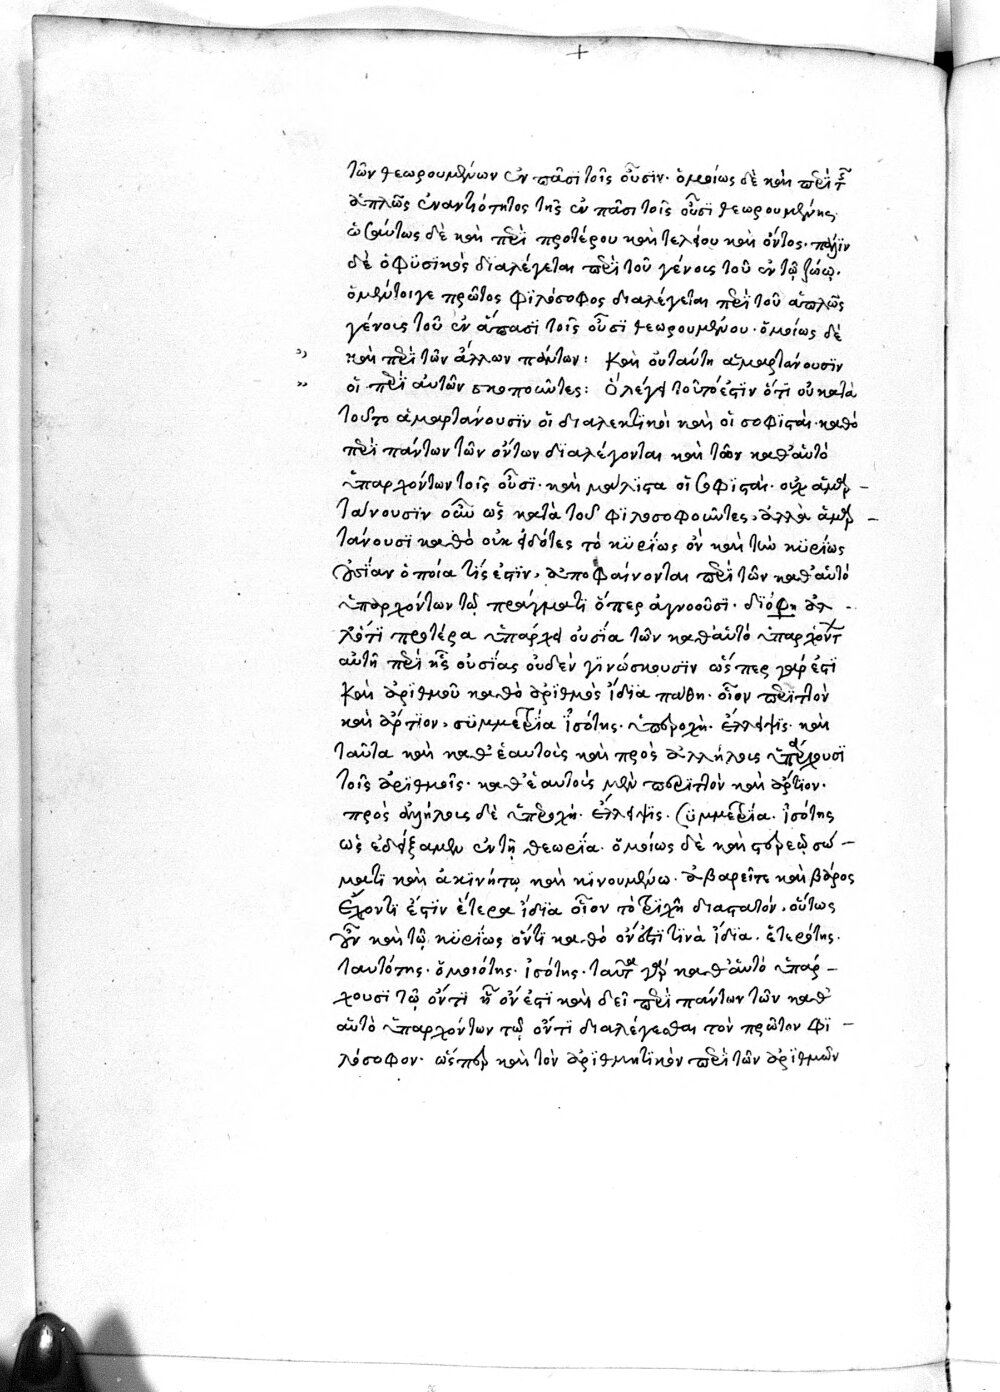 τῶν θεωρουμένων ἐν πᾶσι τοῖς οὖσιν· ὁμοίως δὲ καὶ περὶ τῆς
ἁπλῶς ἐναντιότητος τῆς ἐν πᾶσι τοῖς οὖσι θεωρουμένης·
ὡσαύτως δὲ καὶ περὶ προτέρου καὶ τελείου καὶ ὄντος· πάλιν
δὲ ὁ φυσικὸς διαλέγεται περὶ τοῦ γένους τοῦ ἐν τῷ ζώῳ·
ὁ μέντοιγε πρῶτος φιλόσοφος διαλέγεται περὶ τοῦ ἁπλῶς
γένους τοῦ ἐν ἅπασι τοῖς οὖσι θεωρουμένου· ὁμοίως δὲ
καὶ περὶ τῶν ἄλλων πάντων: καὶ οὐ ταύτῃ ἁμαρτάνουσιν
οἱ περὶ αὐτῶν σκοποῦντες: ὃ λέγει τοῦτό ἐστιν ὅτι οὐ κατὰ
τοῦτο ἁμαρτάνουσιν οἱ διαλεκτικοὶ καὶ οἱ σοφισταὶ· καθὸ
περὶ πάντων τῶν ὄντων διαλέγονται καὶ τῶν καθ' αὑτὸ
ὑπαρχόντων τοῖς οὖσι· καὶ μάλιστα οἱ σοφισταὶ· οὐχ ἁμαρ–
τάνουσιν οὖν ὡς κατὰ τοῦ φιλοσοφοῦντες, ἀλλὰ ἁμαρ–
τάνουσι καθὸ οὐκ εἰδότες τὸ κυρίως ὂν καὶ τὴν κυρίως
οὐσίαν ὁποία τίς ἐστιν, ἀποφαίνονται περὶ τῶν καθ' αὑτὸ
ὑπαρχόντων τῷ πράγματι ὅπερ ἀγνοοῦσι·
λότι προτέρα ὑπάρχει οὐσία τῶν καθ' αὑτὸ ὑπαρχόντων
αὐτῇ περὶ ἧς οὐσίας οὐδὲν γινώσκουσιν ὥσπερ γάρ ἐστι
καὶ ἀριθμοῦ καθὸ ἀριθμὸς ἴδια πάθη· οἷον περιττὸν
καὶ ἄρτιον, συμμετρία ἰσότης· ὑπεροχὴ· ἔλλειψις· καὶ
ταῦτα καὶ καθ' ἑαυτοὺς καὶ πρὸς ἀλλήλους ὑπάρχουσι
τοῖς ἀριθμοῖς· καθ' ἑαυτοὺς μὲν περιττὸν καὶ ἄρτιον·
πρὸς ἀλλήλους δὲ ὑπεροχή· ἔλλειψις· συμμετρία· ἰσότης
ὡς ἐδείξαμεν ἐν τῇ θεωρίᾳ· ὁμοίως δὲ καὶ στερεῷ σώ–
ματι καὶ ἀκινήτῳ καὶ κινουμένῳ· ἀβαρεῖ τε καὶ βάρος
ἔχοντι ἐστὶν ἕτερα ἴδια οἷον τὸ τριχῇ διαστατόν· οὕτως
οὖν καὶ τῷ κυρίως ὄντι καθὸ ὄν ἐστί τινὰ ἴδια· ἑτερότης·
ταυτότης· ὁμοιότης· ἰσότης· ταῦτα γὰρ καθ' αὑτὸ ὑπάρ–
χουσι τῷ ὄντι ᾗ ὄν ἐστι καὶ δεῖ περὶ πάντων τῶν καθ'
αὑτὸ ὑπαρχόντων τῷ ὄντι διαλέγεσθαι τὸν πρῶτον φι–
λόσοφον· ὥσπερ καὶ τὸν ἀριθμητικὸν περὶ τῶν ἀριθμῶν